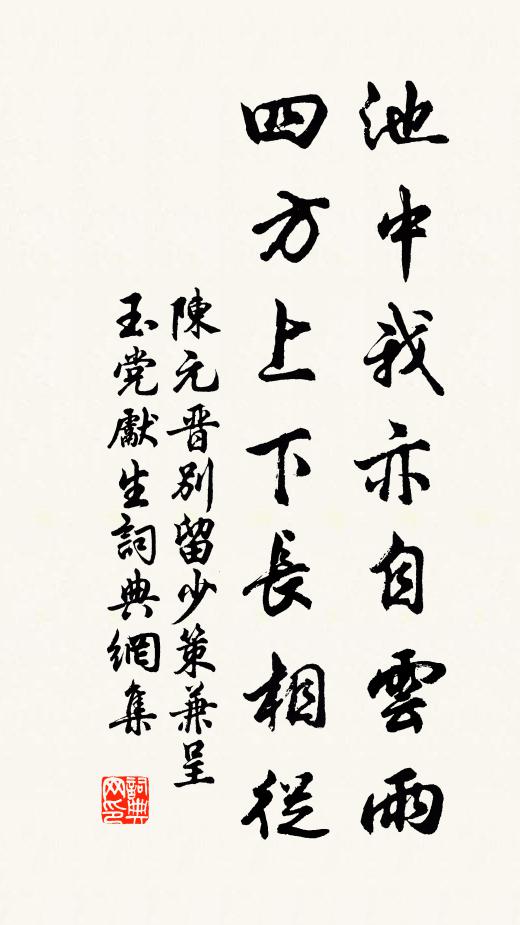 池中我亦自雲雨
四方上下長相從
陳元晋別留少策兼呈
玉党獻生詞典網集
詞典
网印